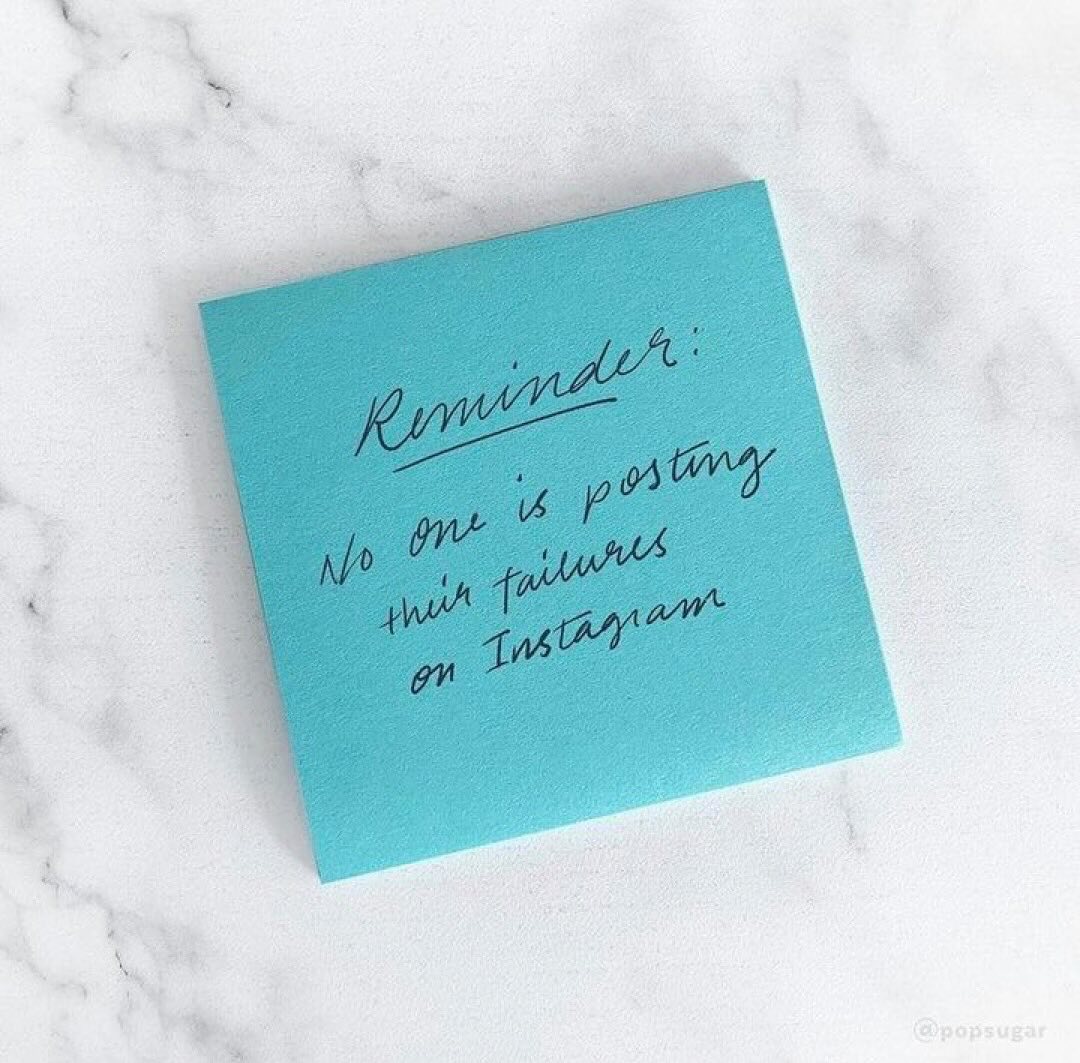 Reminder:
No one is posting
their failures
on Instagram
@popsugar